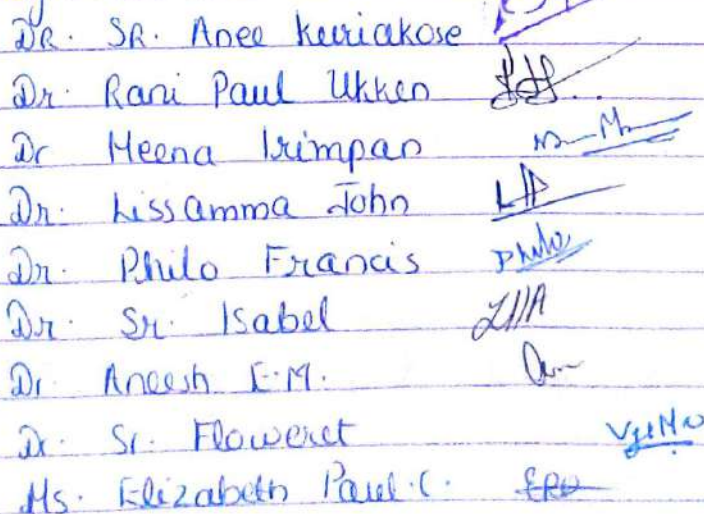 Dr. Sr. Anee Kuriakose
Dr. Rani Paul Ukken
Dr Meena Irimpan
Dr. Lissamma John
Dr. Philo Francis Philo
Dr. Sr. Isabel
Dr Aneesh E.M.
Dr. Sr. Floweret
Ms. Elizabeth Paul.C.